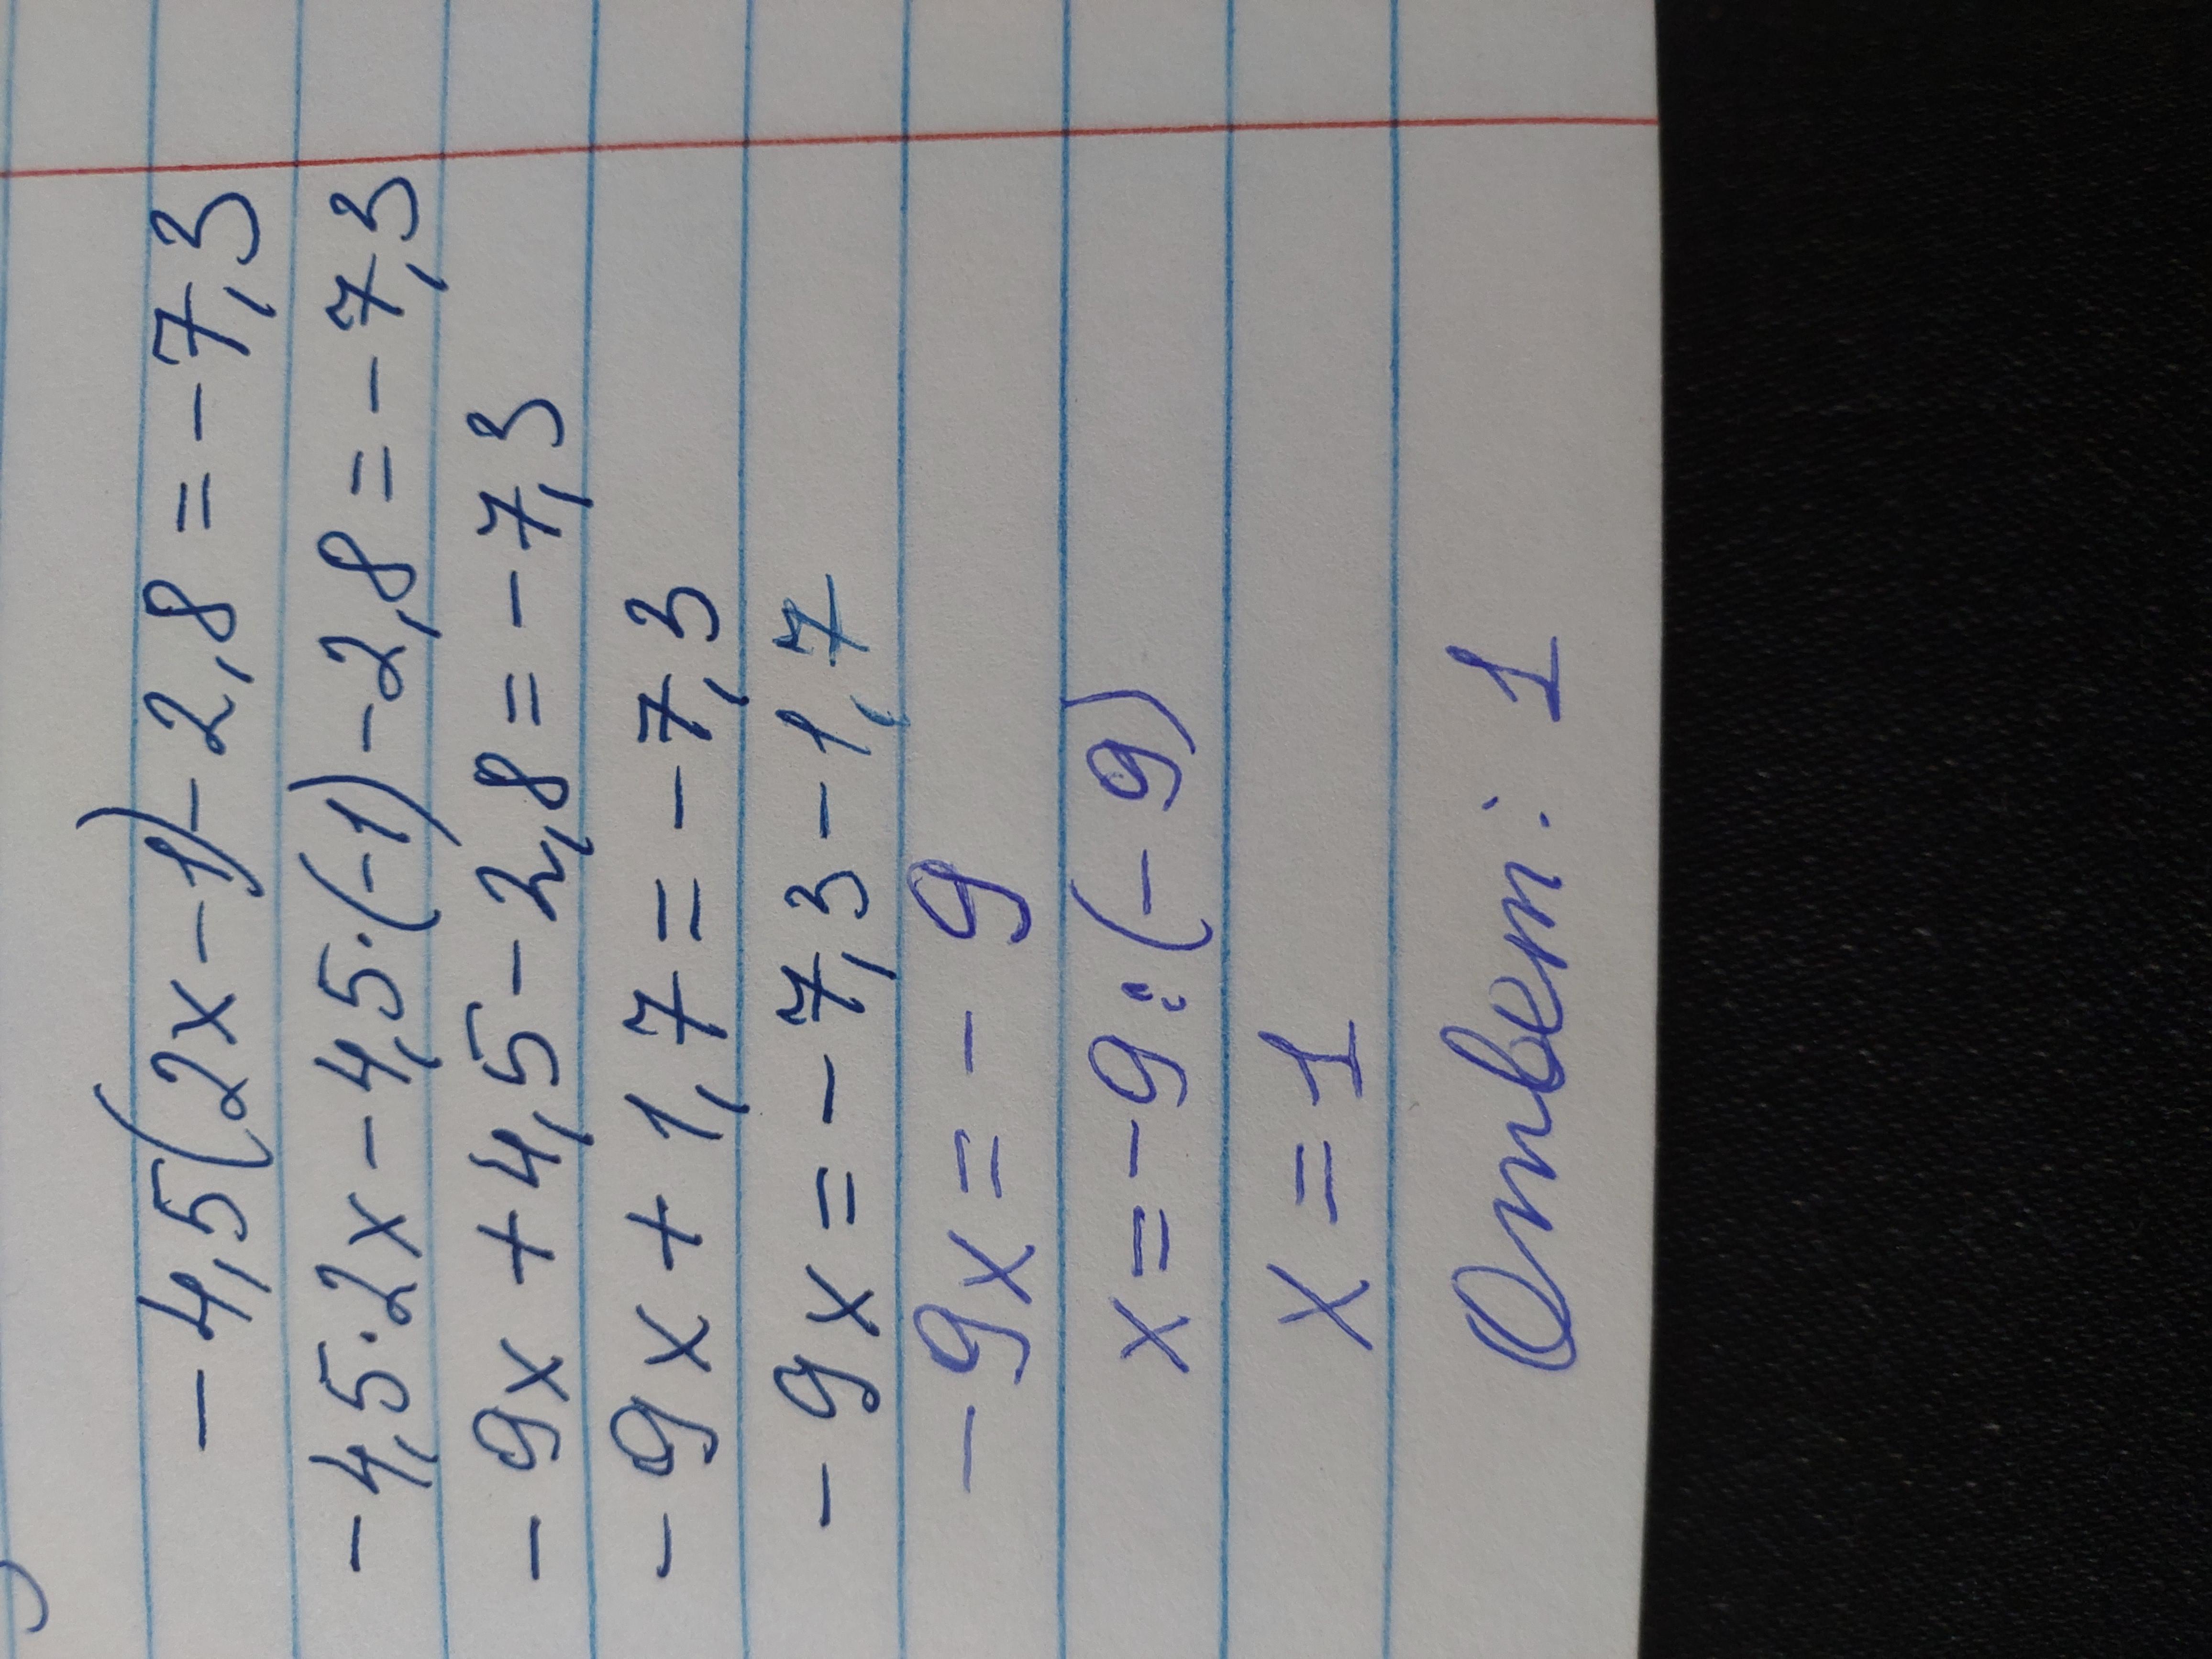 -4,5(2x-1)-2,8=-7,3
-4,5·2x-4,5·(-1)-2,8=-7,3
-9x+4,5-2,8=-7,3
-9x+1,7=-7,3
-9x=-7,3-1,7
-9x=-9
x=-9:(-9)
x=1
Ответ: 1